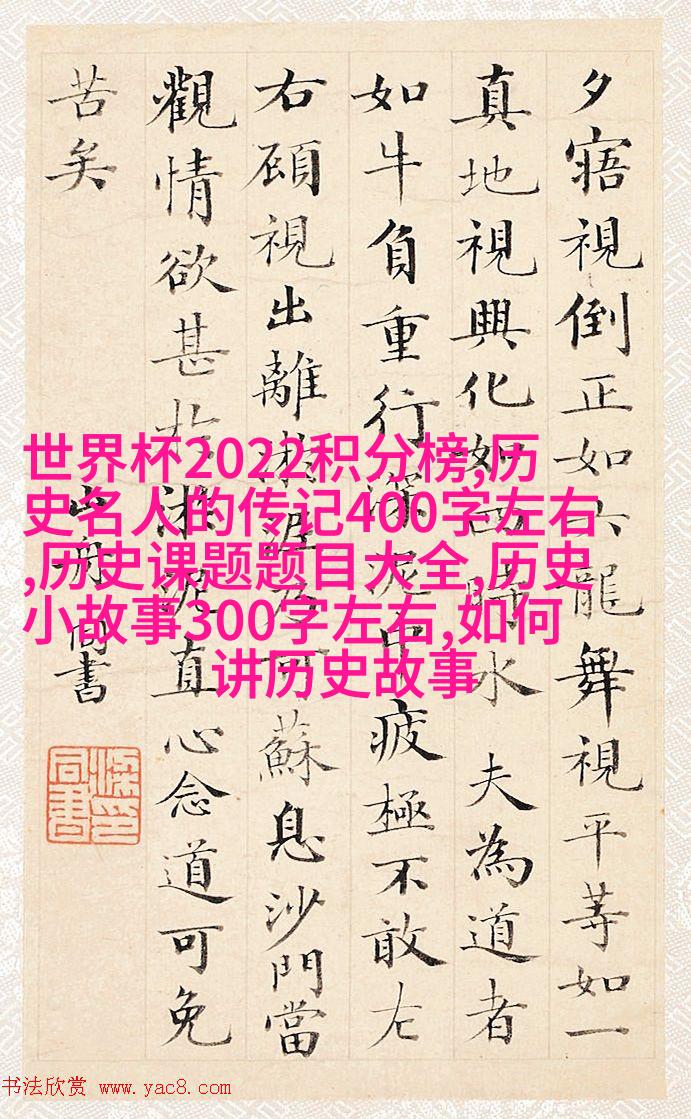 夕寤視倒正如六龍舞視平等如一
真地視興化如四時水夫為道者
如牛負重行深泥中疲極不敢左
右顧視出離淤泥乃可蘇息沙門當
觀情欲甚於淤泥直心念道可免
苦矣
山舟同書
梁同書印
世界杯2022积分榜,历
史名人的传记400字左右
,历史课题题目大全,历史
小故事300字左右,如何
讲历史故事
书法欣赏 www.yac8.com